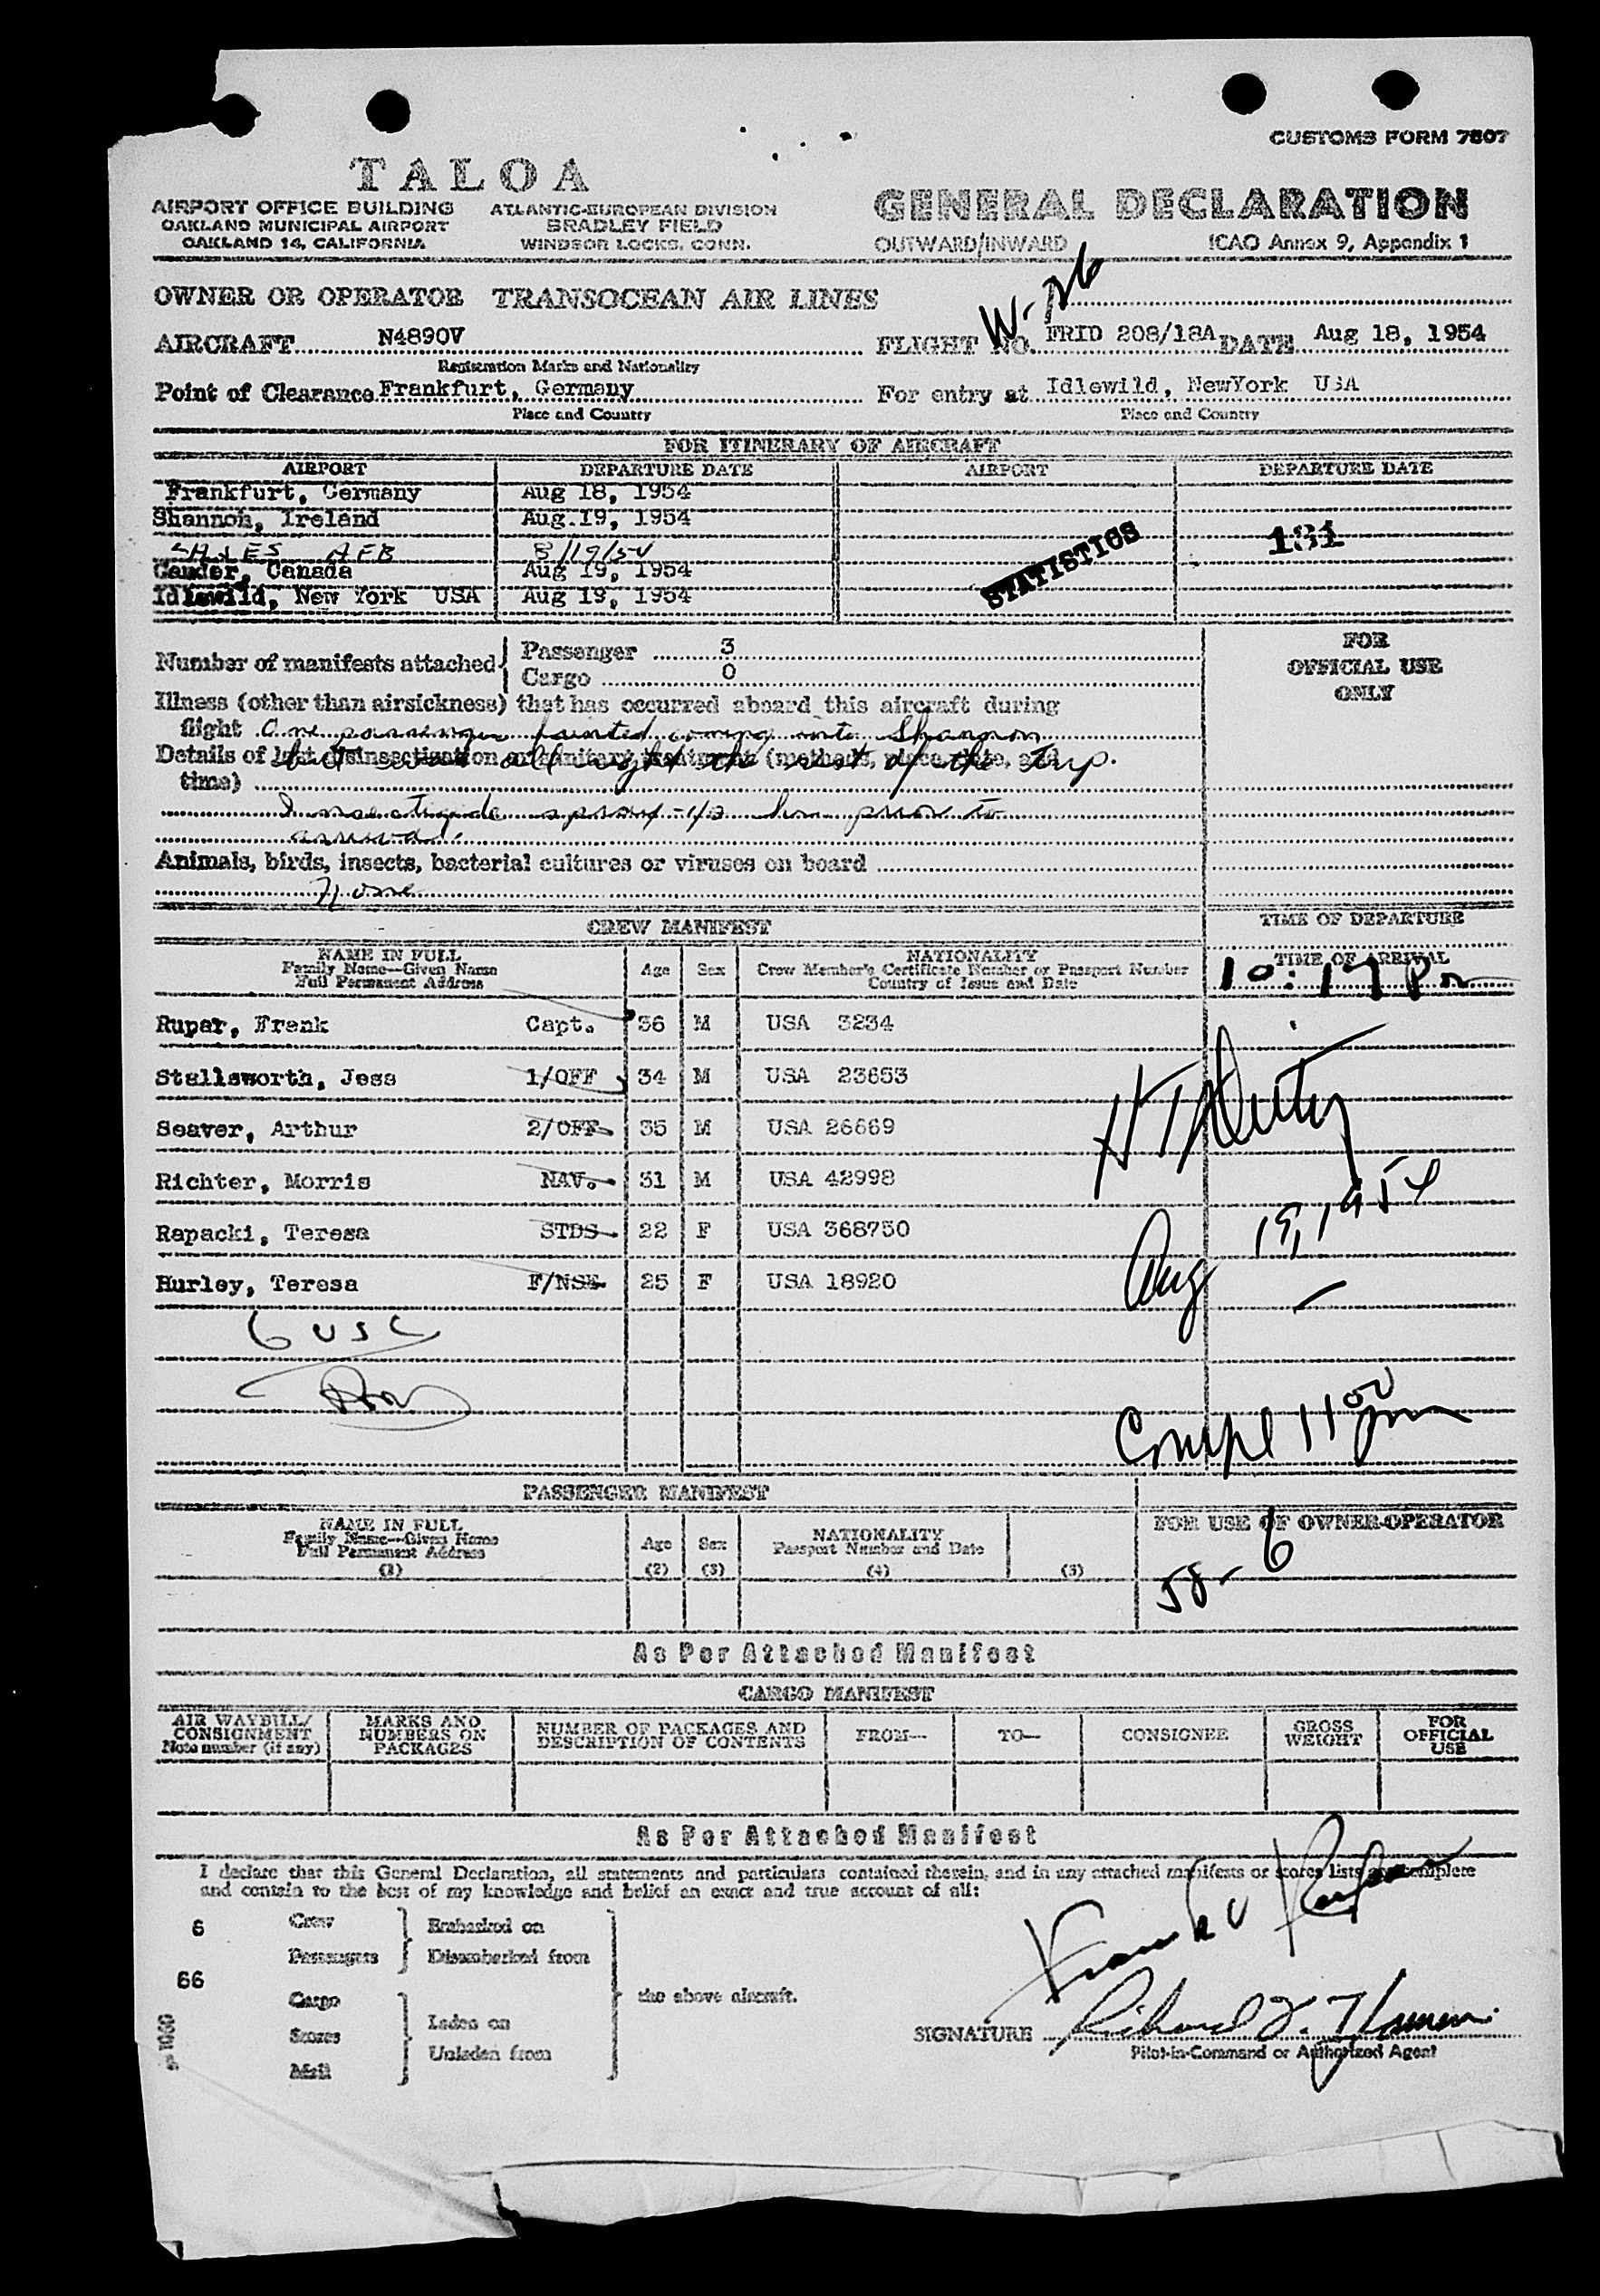 CUSTOMS FORM 7507
TALOA
AIRPORT OFFICE BUILDING
OAKLAND MUNICIPAL AIRPORT
OAKLAND 14, CALIFORNIA
ATLANTIC-EUROPEAN DIVISION
BRADLEY FIELD
WINDSOR LOCKS, CONN.
GENERAL DECLARATION
OUTWARD/INWARD ICAO Annex 9, Appendix 1
OWNER OR OPERATOR TRANSOCEAN AIR LINES
AIRCRAFT N4890V FLIGHT NO. FRID 208/18A DATE Aug 18, 1954
Registration Marks and Nationality
Point of Clearance Frankfurt, Germany For entry at Idlewild, NewYork USA
Place and Country Place and Country
FOR ITINERARY OF AIRCRAFT
AIRPORT DEPARTURE DATE AIRPORT DEPARTURE DATE
Frankfurt, Germany Aug 18, 1954
Shannon, Ireland Aug.19, 1954
STATISTICS 131
AFB 8/19/54
Gander, Canada Aug 19, 1954
Idlewild, New York USA Aug 19, 1954
Number of manifests attached Passenger 3
Cargo 0
FOR
OFFICIAL USE
ONLY
Illness (other than airsickness) that has occurred aboard this aircraft during
flight One passenger fainted coming into Shannon
but was all right the rest of the trip.
Details of last disinsectisation or sanitary treatment (methods, place, date, and
time)
Insecticide spray - 1/2 hr prior to
arrival.
Animals, birds, insects, bacterial cultures or viruses on board
None
CREW MANIFEST
TIME OF DEPARTURE
TIME OF ARRIVAL
10:17 Pm
NAME IN FULL
Family Name—Given Name
Full Permanent Address
Age Sex
NATIONALITY
Crew Member's Certificate Number or Passport Number
Country of Issue and Date
Rupar, Frank Capt. 36 M USA 3234
Stallsworth, Jess 1/OFF 34 M USA 23653
Seaver, Arthur 2/OFF 35 M USA 26669
Richter, Morris NAV. 31 M USA 42998
Rapacki, Teresa STDS 22 F USA 368750
Hurley, Teresa F/NSE 25 F USA 18920
Aug 19, 1954
6 USC
Compl 11 00 pm
PASSENGER MANIFEST
NAME IN FULL
Family Name—Given Name
Full Permanent Address
(1)
Age
(2)
Sex
(3)
NATIONALITY
Passport Number and Date
(4)
(5)
FOR USE OF OWNER-OPERATOR
58-6
As Per Attached Manifest
CARGO MANIFEST
AIR WAYBILL/
CONSIGNMENT
Note number (if any)
MARKS AND
NUMBERS ON
PACKAGES
NUMBER OF PACKAGES AND
DESCRIPTION OF CONTENTS
FROM— TO— CONSIGNEE
GROSS
WEIGHT
FOR
OFFICIAL
USE
As Per Attached Manifest
I declare that this General Declaration, all statements and particulars contained therein, and in any attached manifests or stores lists are complete
and contain to the best of my knowledge and belief an exact and true account of all:
6 Crew Embarked on
Passengers Disembarked from
66
the above aircraft.
Cargo
Stores Laden on
Mail Unladen from
Frank Rupar
SIGNATURE Richard
Pilot-in-Command or Authorized Agent